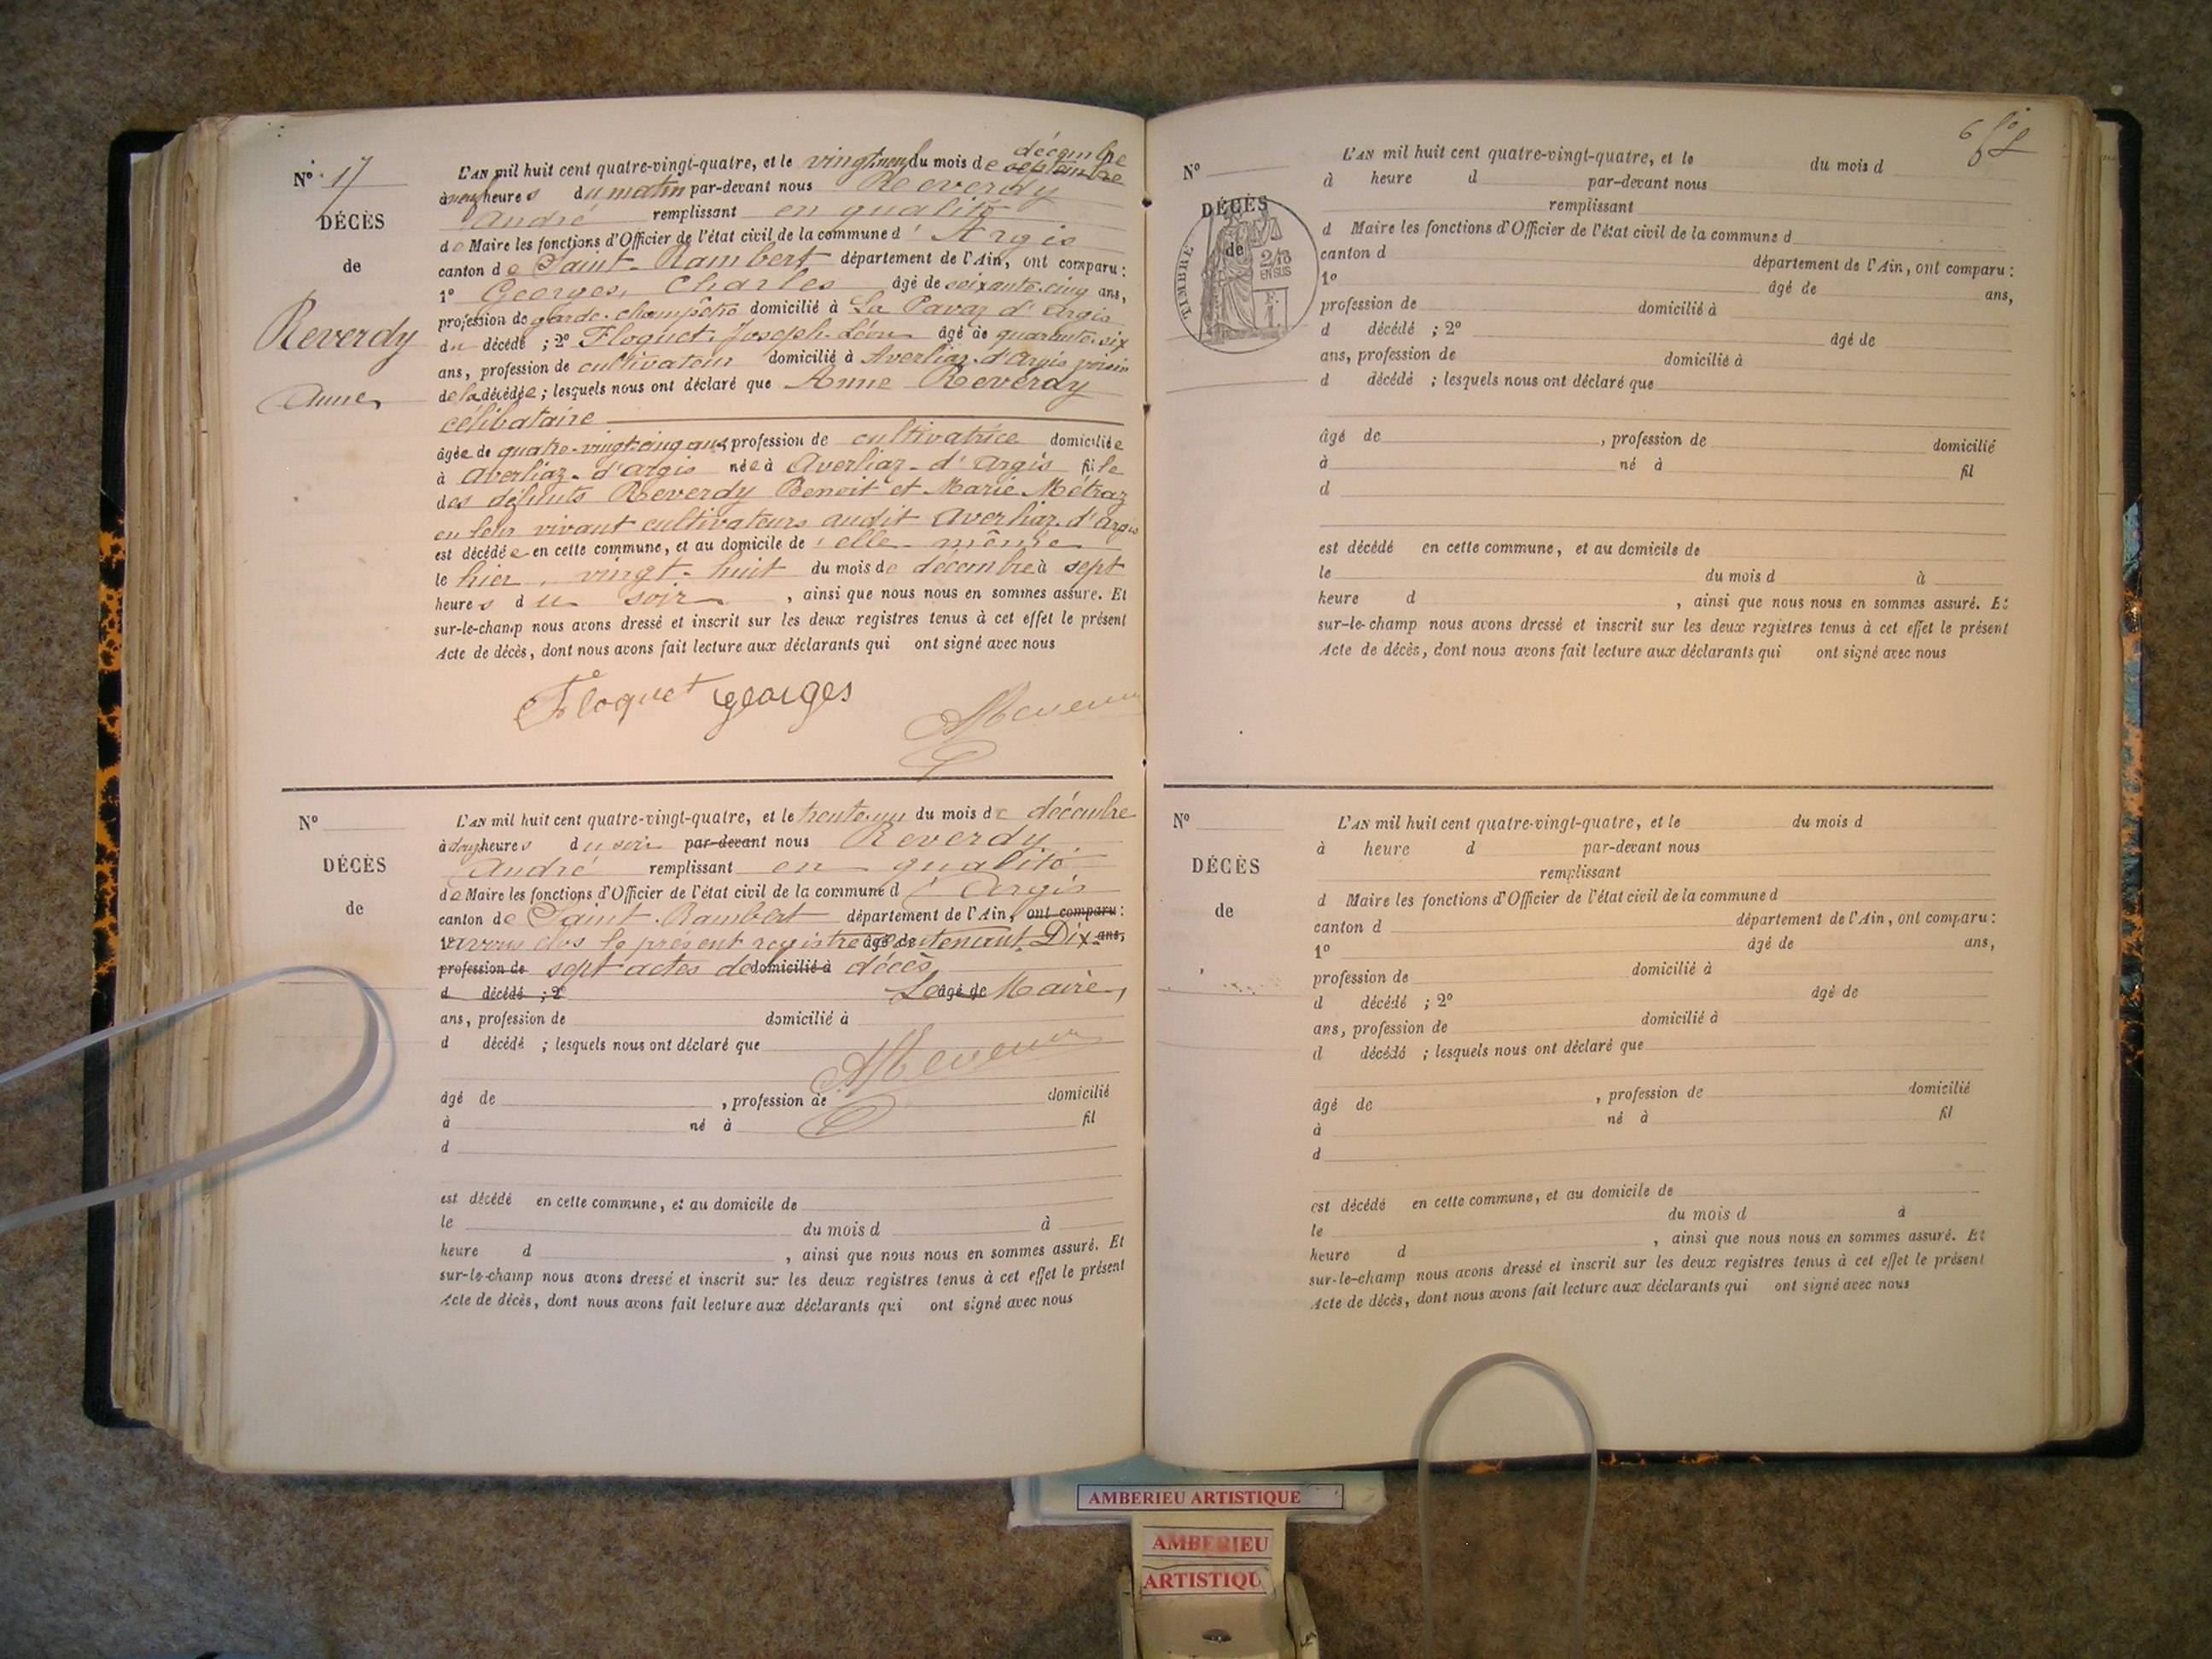 N° 17
DÉCÈS
de
Reverdy
Anne
décembre
L'AN mil huit cent quatre-vingt-quatre, et le vingt-neuf du mois de septembre
à neuf heures du matin par-devant nous Reverdy
André remplissant en qualité
de Maire les fonctions d'Officier de l'état civil de la commune d'Argis
canton de Saint-Rambert département de l'Ain, ont comparu :
1° Georges, Charles âgé de soixante-cinq ans,
profession de garde-champêtre domicilié à La Pavaz d'Argis
du décédé ; 2° Floquet, Joseph-Léon âgé de quarante-six
ans, profession de cultivateur domicilié à Averliaz-d'Argis voisin
de la décédée ; lesquels nous ont déclaré que Anne Reverdy
célibataire
âgée de quatre-vingt-cinq ans, profession de cultivatrice domiciliée
à Averliaz-d'Argis née à Averliaz-d'Argis fille
des défunts Reverdy Benoit et Marie Métraz
en leur vivant cultivateurs audit Averliaz-d'Argis
est décédée en cette commune, et au domicile de elle-même
le hier, vingt-huit du mois de décembre à sept
heures du soir, ainsi que nous nous en sommes assuré. Et
sur-le-champ nous avons dressé et inscrit sur les deux registres tenus à cet effet le présent
Acte de décès, dont nous avons fait lecture aux déclarants qui ont signé avec nous
Floquet Georges
N°
DÉCÈS
de
L'AN mil huit cent quatre-vingt-quatre, et le trente-un du mois de décembre
à heures du soir par-devant nous Reverdy
André remplissant en qualité
de Maire les fonctions d'Officier de l'état civil de la commune d'Argis
canton de Saint-Rambert département de l'Ain, ont comparu :
1° avons clos le présent registre âgé de contenant Dix- ans,
profession de sept actes de domicilié à décès
d décédé ; 2° Le âgé de Maire,
ans, profession de domicilié à
d décédé ; lesquels nous ont déclaré que
âgé de , profession de domicilié
à né à fil
d
est décédé en cette commune, et au domicile de
le du mois d à
heure d , ainsi que nous nous en sommes assuré. Et
sur-le-champ nous avons dressé et inscrit sur les deux registres tenus à cet effet le présent
Acte de décès, dont nous avons fait lecture aux déclarants qui ont signé avec nous
6
N°
DÉCÈS
de
TIMBRE
2/10
EN SUS
L'AN mil huit cent quatre-vingt-quatre, et le du mois d
à heure d par-devant nous
remplissant
d Maire les fonctions d'Officier de l'état civil de la commune d
canton d département de l'Ain, ont comparu :
1° âgé de ans,
profession de domicilié à
d décédé ; 2° âgé de
ans, profession de domicilié à
d décédé ; lesquels nous ont déclaré que
âgé de , profession de domicilié
à né à fil
d
est décédé en cette commune, et au domicile de
le du mois d à
heure d , ainsi que nous nous en sommes assuré. Et
sur-le-champ nous avons dressé et inscrit sur les deux registres tenus à cet effet le présent
Acte de décès, dont nous avons fait lecture aux déclarants qui ont signé avec nous
N°
DÉCÈS
de
L'AN mil huit cent quatre-vingt-quatre, et le du mois d
à heure d par-devant nous
remplissant
d Maire les fonctions d'Officier de l'état civil de la commune d
canton d département de l'Ain, ont comparu :
1° âgé de ans,
profession de domicilié à
d décédé ; 2° âgé de
ans, profession de domicilié à
d décédé ; lesquels nous ont déclaré que
âgé de , profession de domicilié
à né à fil
d
est décédé en cette commune, et au domicile de
le du mois d à
heure d , ainsi que nous nous en sommes assuré. Et
sur-le-champ nous avons dressé et inscrit sur les deux registres tenus à cet effet le présent
Acte de décès, dont nous avons fait lecture aux déclarants qui ont signé avec nous
AMBERIEU ARTISTIQUE
AMBERIEU
ARTISTIQU